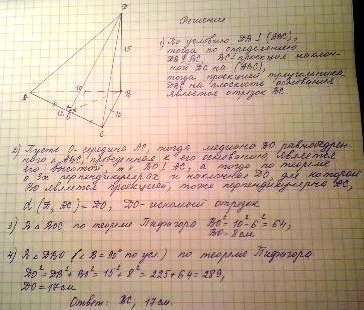 Решение
1) По условию DB⊥(ABC),
тогда по определению
DB⊥BC, BC - проекция наклон-
ной DC на (ABC),
тогда проекцией треугольника
DBC на плоскость основания
является отрезок BC
2) Пусть O - середина AC, тогда медиана BO равнобедрен-
ного △ABC, проведенная к его основанию, является
его высотой, т.е. BO⊥AC, а тогда по теореме
о 3-х перпендикулярах и наклонная DO, для которой
BO является проекцией, тоже перпендикулярна AC,
d(D, AC) = DO, DO - искомый отрезок
3) В △BOC по теореме Пифагора BO²=10²-6²=64,
BO=8см
4) В △DBO (∠B=90° по усл.) по теореме Пифагора
DO²=DB²+BO²=15²+8²=225+64=289,
DO=17см
Ответ: BC, 17см.
D
15
B
C